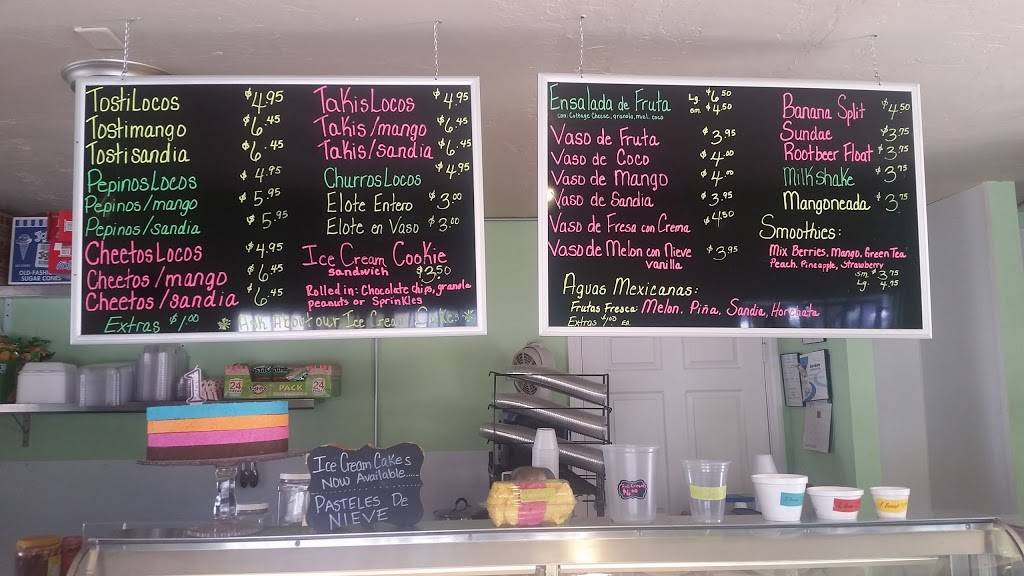 TostiLocos $4.95
Tostimango $6.45
Tostisandia $6.45
PepinosLocos $4.95
Pepinos/mango $5.95
Pepinos/sandia $5.95
CheetosLocos $4.95
Cheetos/mango $6.45
Cheetos/sandia $6.45
Extras $1.00
TakisLocos $4.95
Takis/mango $6.45
Takis/sandia $6.45
ChurrosLocos $4.95
Elote Entero $3.00
Elote en Vaso $3.00
Ice Cream Cookie
sandwich $3.50
Rolled in: Chocolate chips, granola
peanuts or Sprinkles
Ask About our Ice Cream Cakes
Ensalada de Fruta Lg. $6.50
con: Cottage Cheese, granola, miel, coco sm. $4.50
Vaso de Fruta $3.95
Vaso de Coco $4.00
Vaso de Mango $4.00
Vaso de Sandia $3.95
Vaso de Fresa con Crema $4.50
Vaso de Melon con Nieve $3.95
vanilla
Aguas Mexicanas:
Frutas Fresca: Melon. Piña, Sandia, Horchata
Extras $1.00 ea
Banana Split $4.50
Sundae $3.75
Rootbeer Float $3.75
Milkshake $3.75
Mangoneada $3.75
Smoothies:
Mix Berries, Mango, Green Tea
Peach, Pineapple, Strawberry
sm. $3.75
Lg. 4.75
OLD-FASHI
SUGAR CONES
1
24
PACK
24
Ice Cream Cakes
Now Available......
Pasteles De
Nieve